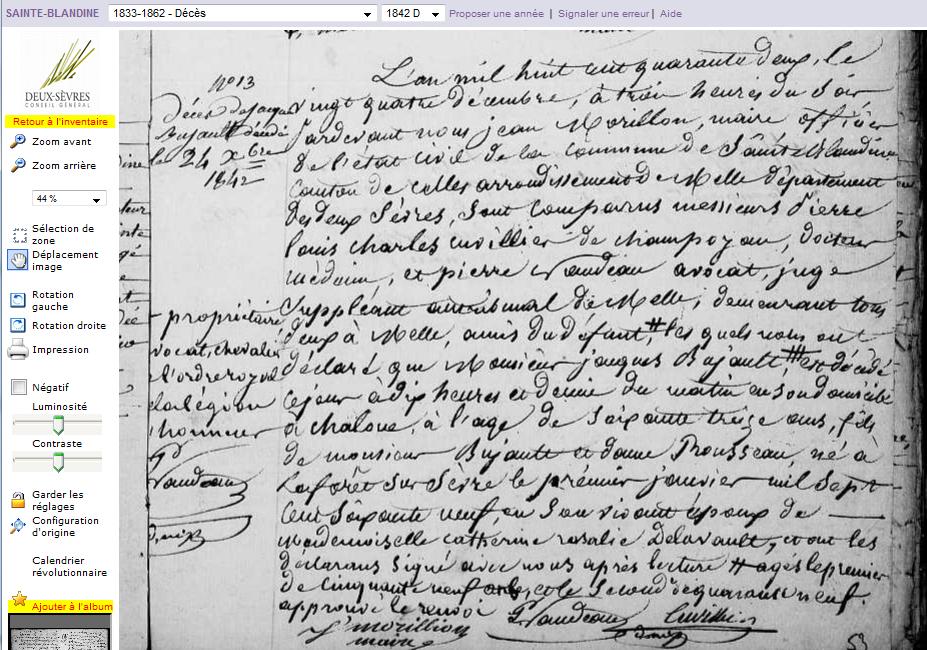 SAINTE-BLANDINE 1833-1862 - Décès 1842 D Proposer une année | Signaler une erreur | Aide
DEUX-SÈVRES
CONSEIL GÉNÉRAL
Retour à l'inventaire
Zoom avant
Zoom arrière
44 %
Sélection de
zone
Déplacement
image
Rotation
gauche
Rotation droite
Impression
Négatif
Luminosité
Contraste
Garder les
réglages
Configuration
d'origine
Calendrier
révolutionnaire
Ajouter à l'album
N° 13
Décès de jacques
Bujault décédé
le 24 Xbre
1842
propriétaire
avocat, chevalier
de l'ordre royal
de la légion
d'honneur
L'an mil huit cent quarante deux, le
vingt quatre décembre, à trois heures du Soir
Pardevant nous jean Morillon, maire officier
de l'état civil de la commune de Sainte Blandine
Canton de celles arrondissement de Melle département
des deux Sèvres, Sont comparus messieurs Pierre
louis charles cuvillier de champoyau, docteur
médecin, et pierre Vandeau avocat, juge
Suppléant au tribunal de Melle, demeurant tous
deux à Melle, amis du défunt, # les quels nous ont
déclaré que Monsieur jacques Bujault, ## est décédé
Ce jour à dix heures et demie du matin en son domicile
à chaloue, à l'age de Soixante treize ans, fils
de monsieur Bujault et dame Prousseau, né à
La forêt sur Sèvre le prémier janvier mil Sept
Cent Soixante neuf, en Son vivant époux de
mademoiselle catherine rosalie Delavault, et ont les
déclarans Signé avec nous après lecture # agés le premier
de cinquante neuf ans, et le Second de quarante neuf.
approuvé le renvoi
J. morillon
maire
Vandeau
Cuvillier
53